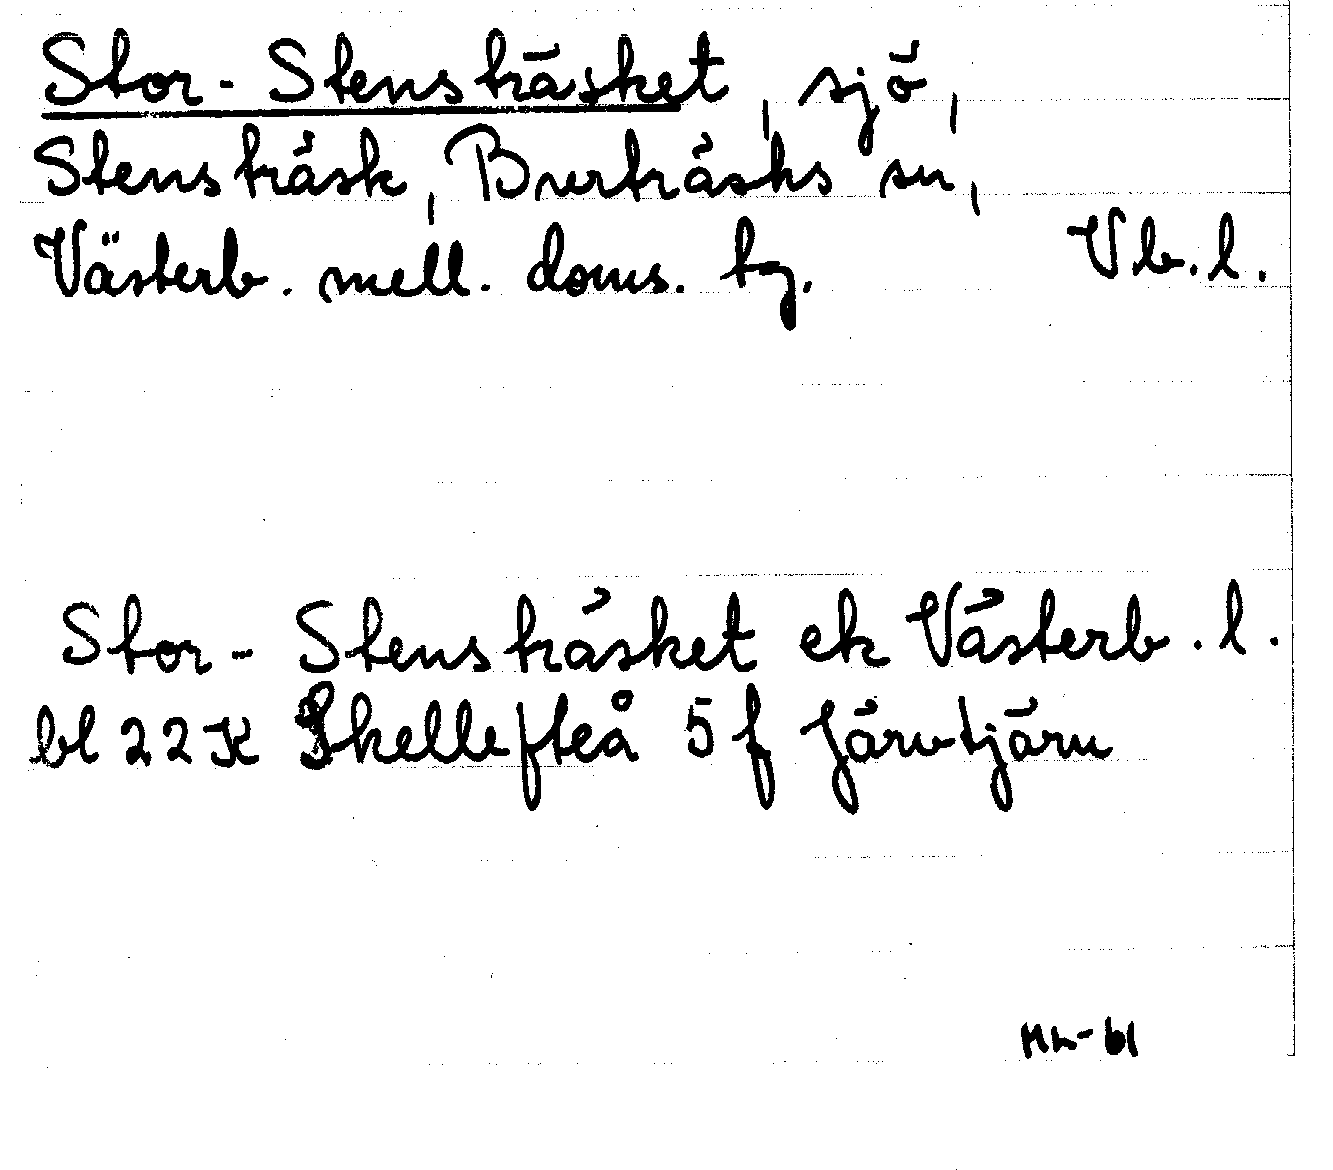 Stor-Stensträsket, sjö,
Stensträsk, Burträsks sn,
Västerb. mell. doms. tg. Vb.l.
Stor-Stensträsket ek Västerb.l.
bl 22 K Skellefteå 5 f Järvtjärn